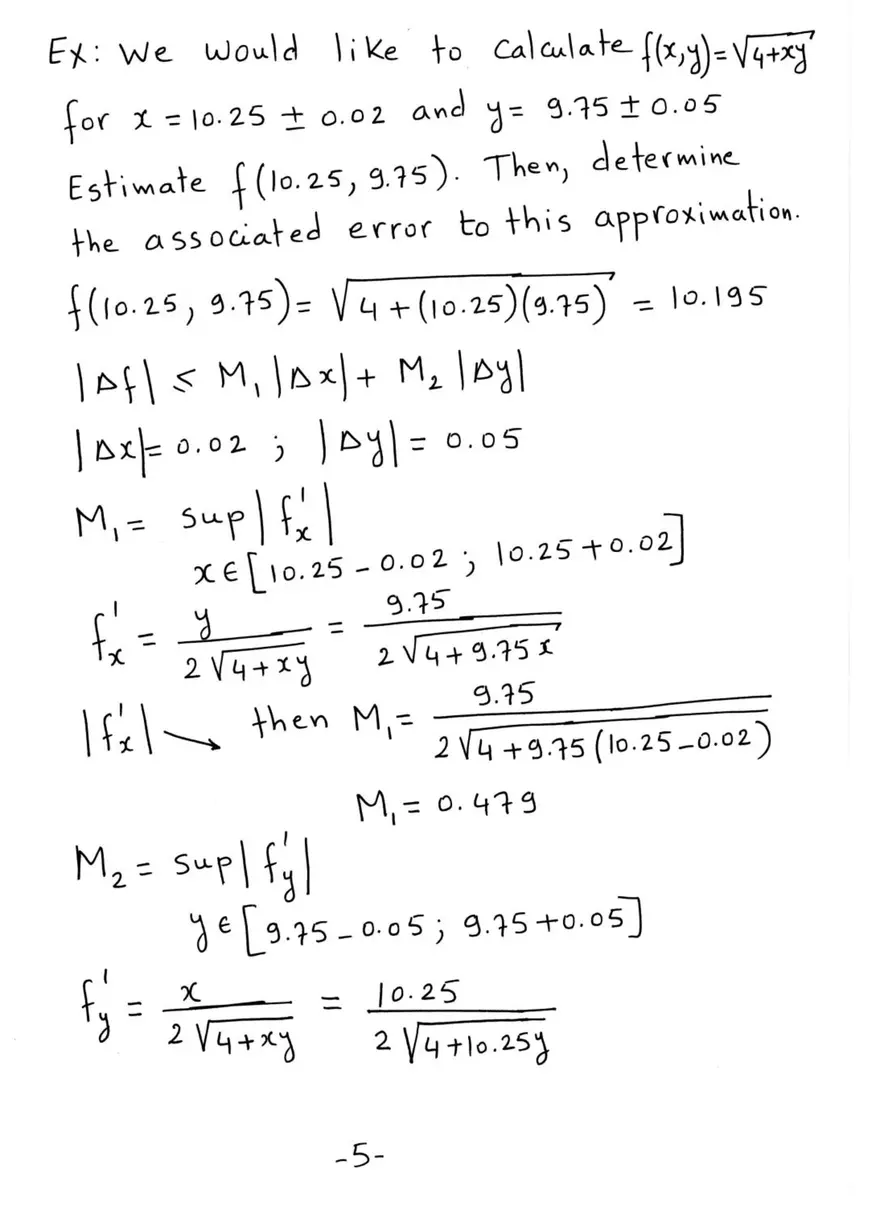 Ex: We would like to calculate f(x,y)=√(4+xy)
for x = 10.25 ± 0.02 and y = 9.75 ± 0.05
Estimate f(10.25, 9.75). Then, determine
the associated error to this approximation.
f(10.25, 9.75) = √(4+(10.25)(9.75)) = 10.195
|Δf| ≤ M₁|Δx| + M₂|Δy|
|Δx| = 0.02 ; |Δy| = 0.05
M₁ = sup|f'ₓ|
x ∈ [10.25 - 0.02 ; 10.25 + 0.02]
f'ₓ = y / (2√(4+xy)) = 9.75 / (2√(4+9.75x))
|f'ₓ| ↘ then M₁ = 9.75 / (2√(4+9.75(10.25-0.02)))
M₁ = 0.479
M₂ = sup|f'y|
y ∈ [9.75 - 0.05 ; 9.75 + 0.05]
f'y = x / (2√(4+xy)) = 10.25 / (2√(4+10.25y))
-5-